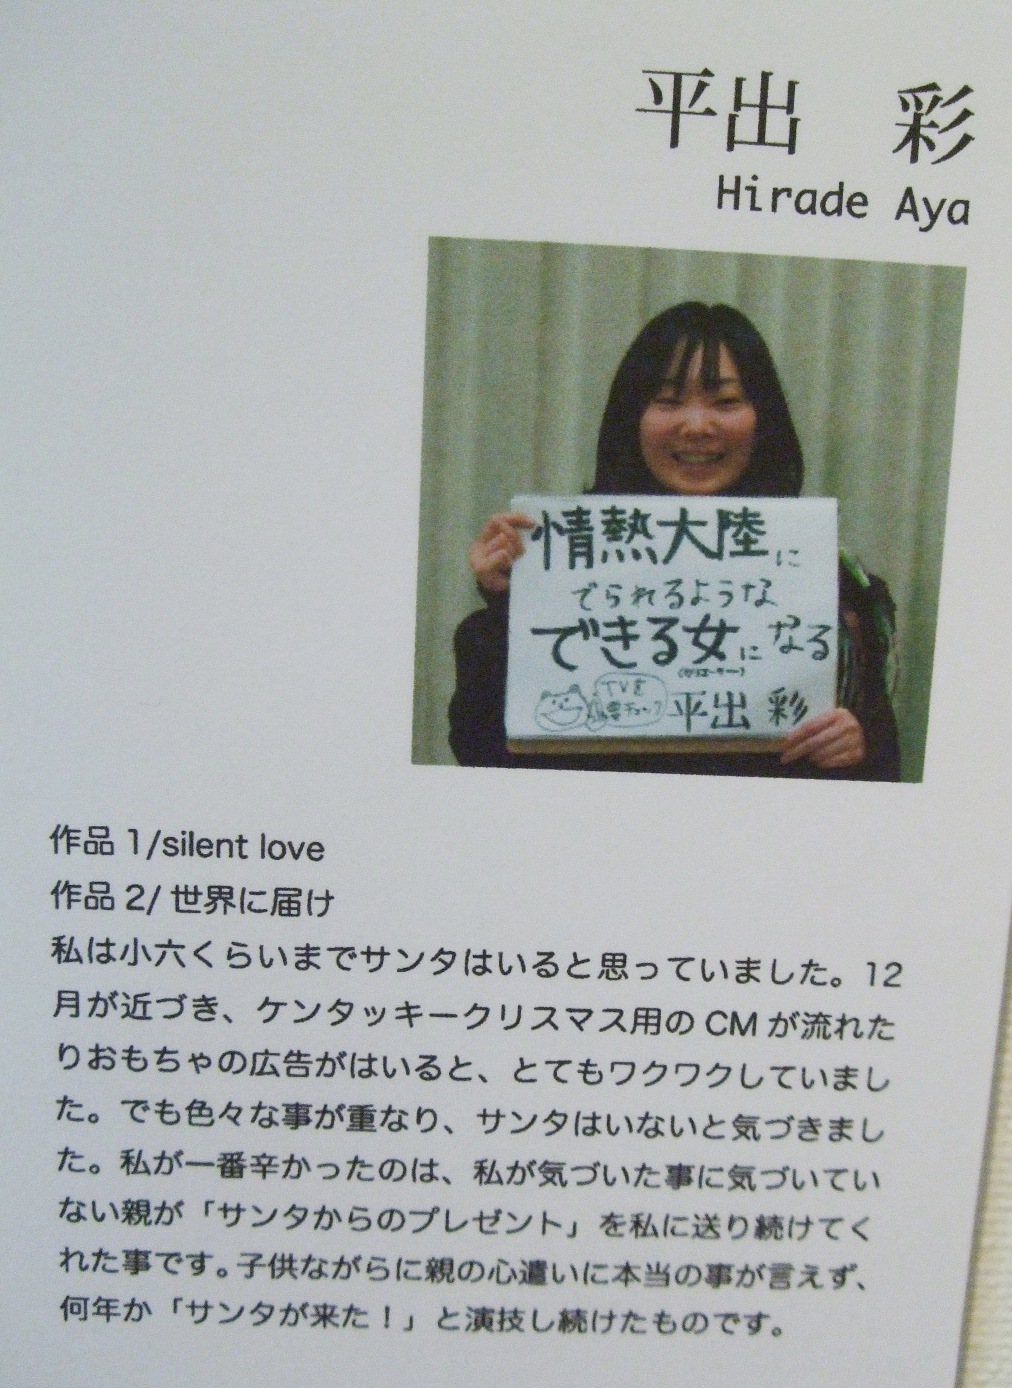 平出　彩
Hirade Aya
情熱大陸に
でられるような
できる女になる
(クリエーター)
TVを
要チェック
平出 彩
作品 1/silent love
作品 2/ 世界に届け
私は小六くらいまでサンタはいると思っていました。12
月が近づき、ケンタッキークリスマス用の CM が流れた
りおもちゃの広告がはいると、とてもワクワクしていまし
た。でも色々な事が重なり、サンタはいないと気づきまし
た。私が一番辛かったのは、私が気づいた事に気づいてい
ない親が「サンタからのプレゼント」を私に送り続けてく
れた事です。子供ながらに親の心遣いに本当の事が言えず、
何年か「サンタが来た！」と演技し続けたものです。